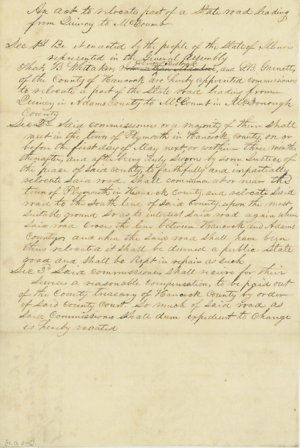 An act to relocate part of a State road leading
from Quincy to McComb
Sec 1st Be it enacted by the people of the State of Illinois
represented in the General Assembly
That
of the County of Hancock are hereby appointed commissioners
to relocate a part of the State road leading from
Quincy in Adams County to McComb in McDonough
County
Sec 2d Said commissioners or a majority of them shall
meet in the town of Plymouth in Hancock County on or
before the first day of May next or within three months
thereafter, and after being duly sworn by some Justice of
the peace of said County to faithfully and impartially
relocate said road Shall commence at or near the
town of Plymouth in Hancock County and relocate said
road to the South line of said County upon the most
suitable ground so as to intersect said road again where
said road crosses the line between Hancock and Adams
County and when the said road shall have been
thus relocated it shall be deemed a public State
road and shall be kept in repair as such
Sec 3d Said Commissioners shall receive for their
services a reasonable compensation, to be paid out
of the County treasury of Hancock County by order
of said County Court So much of said road as
said Commissioners shall deem expedient to change
is hereby vacated